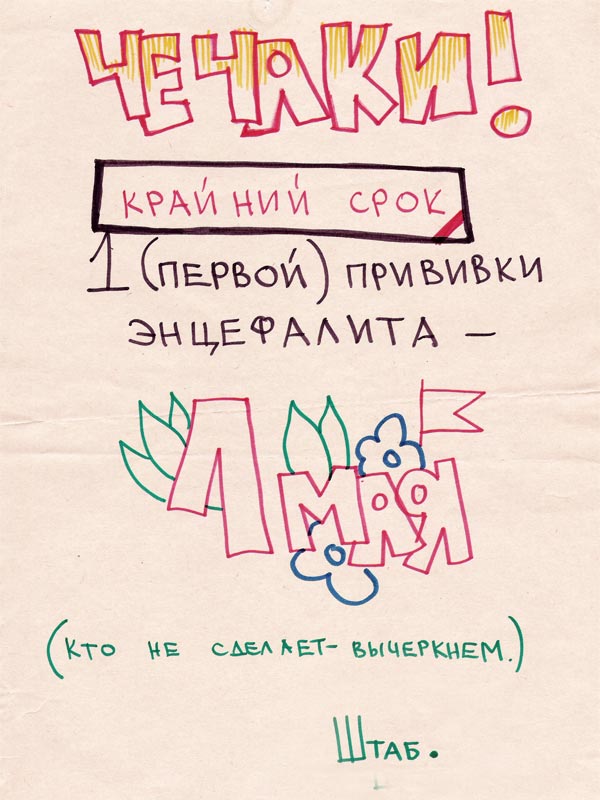 ЧЕЧАКИ!
КРАЙНИЙ СРОК
1 (ПЕРВОЙ) ПРИВИВКИ
ЭНЦЕФАЛИТА —
1 МАЯ
(КТО НЕ СДЕЛАЕТ - ВЫЧЕРКНЕМ.)
ШТАБ.